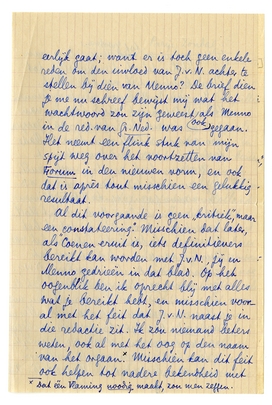 eerlijk gaat; want er is toch geen enkele
reden om den invloed van J.v.N. achter te
stellen bij dien van Menno? De brief dien
je me nu schreef bewijst mij wat het
wachtwoord zou zijn geweest als Menno
ook
in de red. van Gr. Ned. was gegaan.
Het neemt een flink stuk van mijn
spijt weg over het voortzetten van
Forum in den nieuwen vorm, en ook
dat is après tout misschien een gelukkig
resultaat.
Al dit voorgaande is geen „kritiek", maar
een constateering. Misschien dat later,
als Coenen eruit is, iets definitievers
bereikt kan worden met J.v.N., jij en
Menno gedrieën in dat blad. Op het
oogenblik ben ik oprecht blij met alles
wat je bereikt hebt, en misschien voor-
al met het feit dat J.v.N. naast je in
die redactie zit. Ik zou niemand beters
weten, ook al met het oog op den naam
van het orgaan.* Misschien kan dit feit
ook helpen tot nadere bekendheid met
* Dat één Vlaming noodig maakt, zou men zeggen.